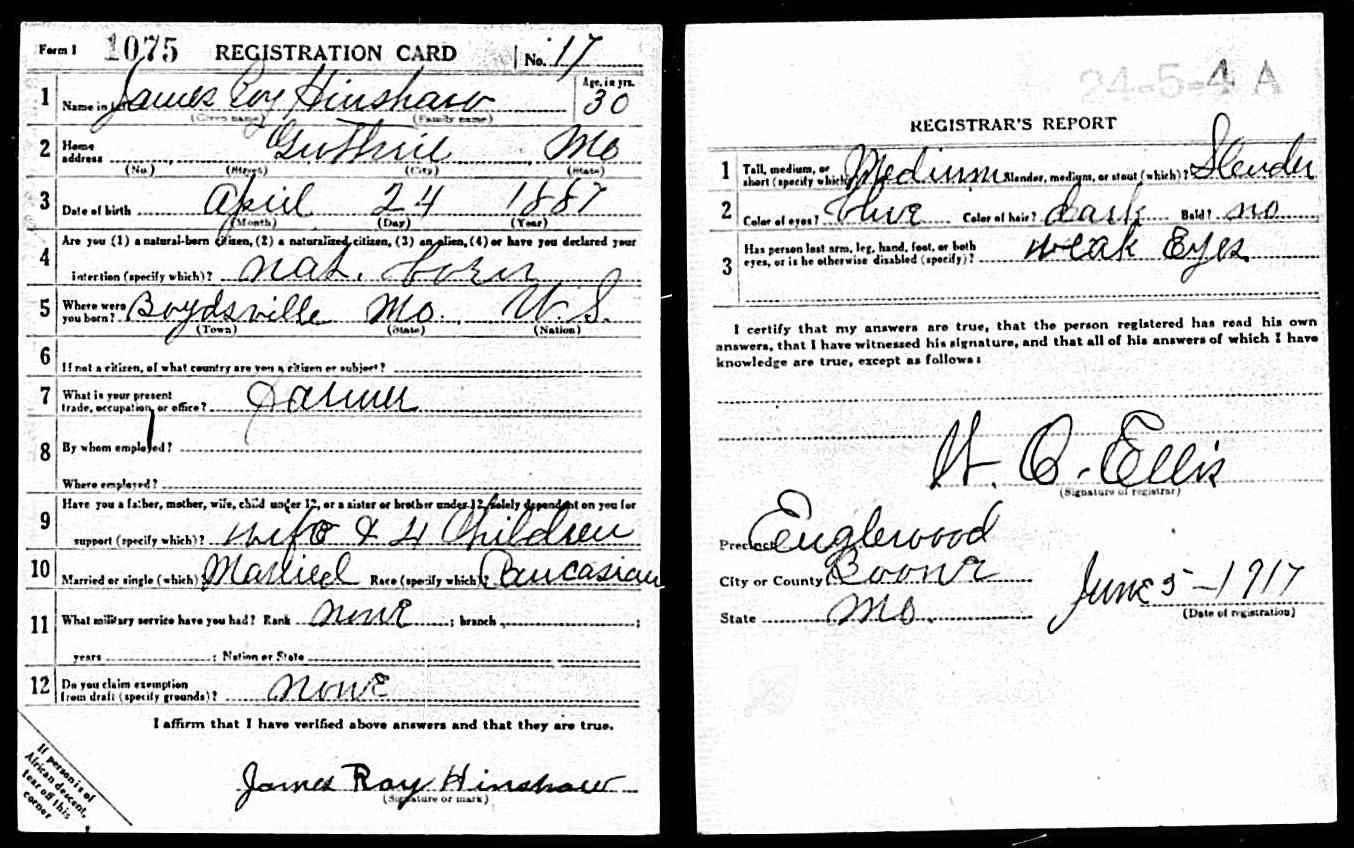 Form 1 1075 REGISTRATION CARD No. 17
1 Name in James Roy Hinshaw Age, in yrs. 30
(Given name) (Family name)
2 Home address Guthrie Mo
(No.) (Street) (City) (State)
3 Date of birth April 24 1887
(Month) (Day) (Year)
4 Are you (1) a natural-born citizen, (2) a naturalized citizen, (3) an alien, (4) or have you declared your
intention (specify which)? nat. born
5 Where were you born? Boydsville Mo. U.S.
(Town) (State) (Nation)
6 If not a citizen, of what country are you a citizen or subject?
7 What is your present trade, occupation, or office? Farmer
8 By whom employed?
Where employed?
9 Have you a father, mother, wife, child under 12, or a sister or brother under 12, solely dependent on you for
support (specify which)? wife & 4 Children
10 Married or single (which) Married Race (specify which)? Caucasian
11 What military service have you had? Rank none ; branch ;
years ; Nation or State
12 Do you claim exemption from draft (specify grounds)? none
I affirm that I have verified above answers and that they are true.
James Ray Hinshaw
(Signature or mark)
If person is of
African descent,
tear off this
corner
24-5-4 A
REGISTRAR'S REPORT
1 Tall, medium, or short (specify which) Medium Slender, medium, or stout (which)? Slender
2 Color of eyes? blue Color of hair? dark Bald? no
3 Has person lost arm, leg, hand, foot, or both eyes, or is he otherwise disabled (specify)? weak Eyes
I certify that my answers are true, that the person registered has read his own
answers, that I have witnessed his signature, and that all of his answers of which I have
knowledge are true, except as follows:
Ellis
(Signature of registrar)
Precinct Englewood
City or County Boone
State Mo.
June 5-1917
(Date of registration)